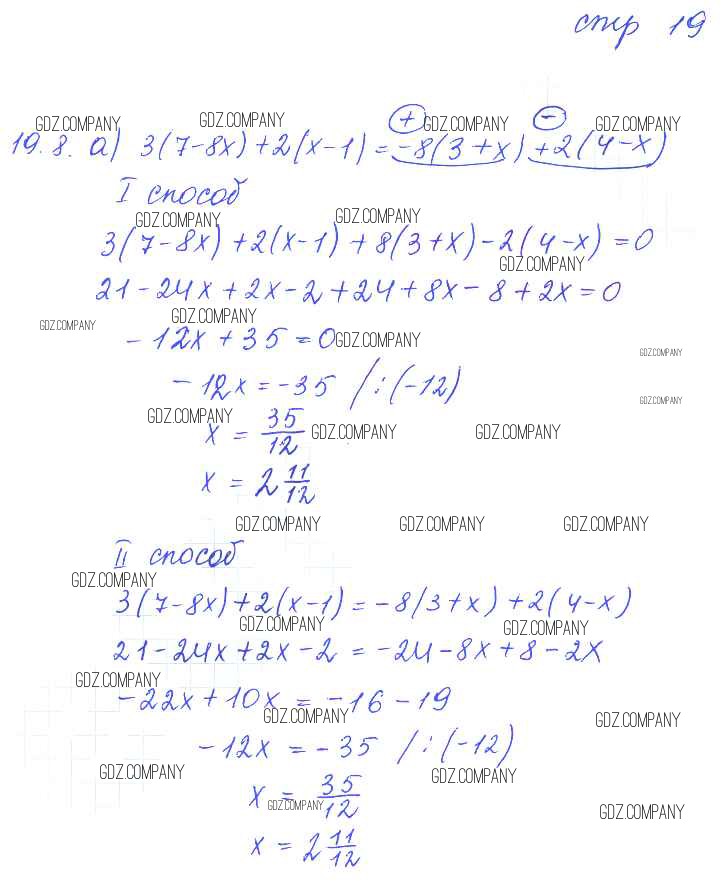 стр 19
GDZ.COMPANY GDZ.COMPANY + GDZ.COMPANY − GDZ.COMPANY
19.8. а) 3(7-8x)+2(x-1)=-8(3+x)+2(4-x)
I способ
GDZ.COMPANY GDZ.COMPANY
3(7-8x)+2(x-1)+8(3+x)-2(4-x)=0
GDZ.COMPANY
21-24x+2x-2+24+8x-8+2x=0
GDZ.COMPANY GDZ.COMPANY
-12x+35=0 GDZ.COMPANY GDZ.COMPANY
-12x=-35 /:(-12) GDZ.COMPANY
GDZ.COMPANY
x = 35/12 GDZ.COMPANY GDZ.COMPANY
x = 2 11/12
GDZ.COMPANY GDZ.COMPANY GDZ.COMPANY
II способ
GDZ.COMPANY
3(7-8x)+2(x-1)=-8(3+x)+2(4-x)
GDZ.COMPANY GDZ.COMPANY
21-24x+2x-2=-24-8x+8-2x
GDZ.COMPANY
-22x+10x=-16-19
GDZ.COMPANY GDZ.COMPANY
-12x=-35 /:(-12)
GDZ.COMPANY GDZ.COMPANY
x = 35/12
GDZ.COMPANY GDZ.COMPANY
x = 2 11/12